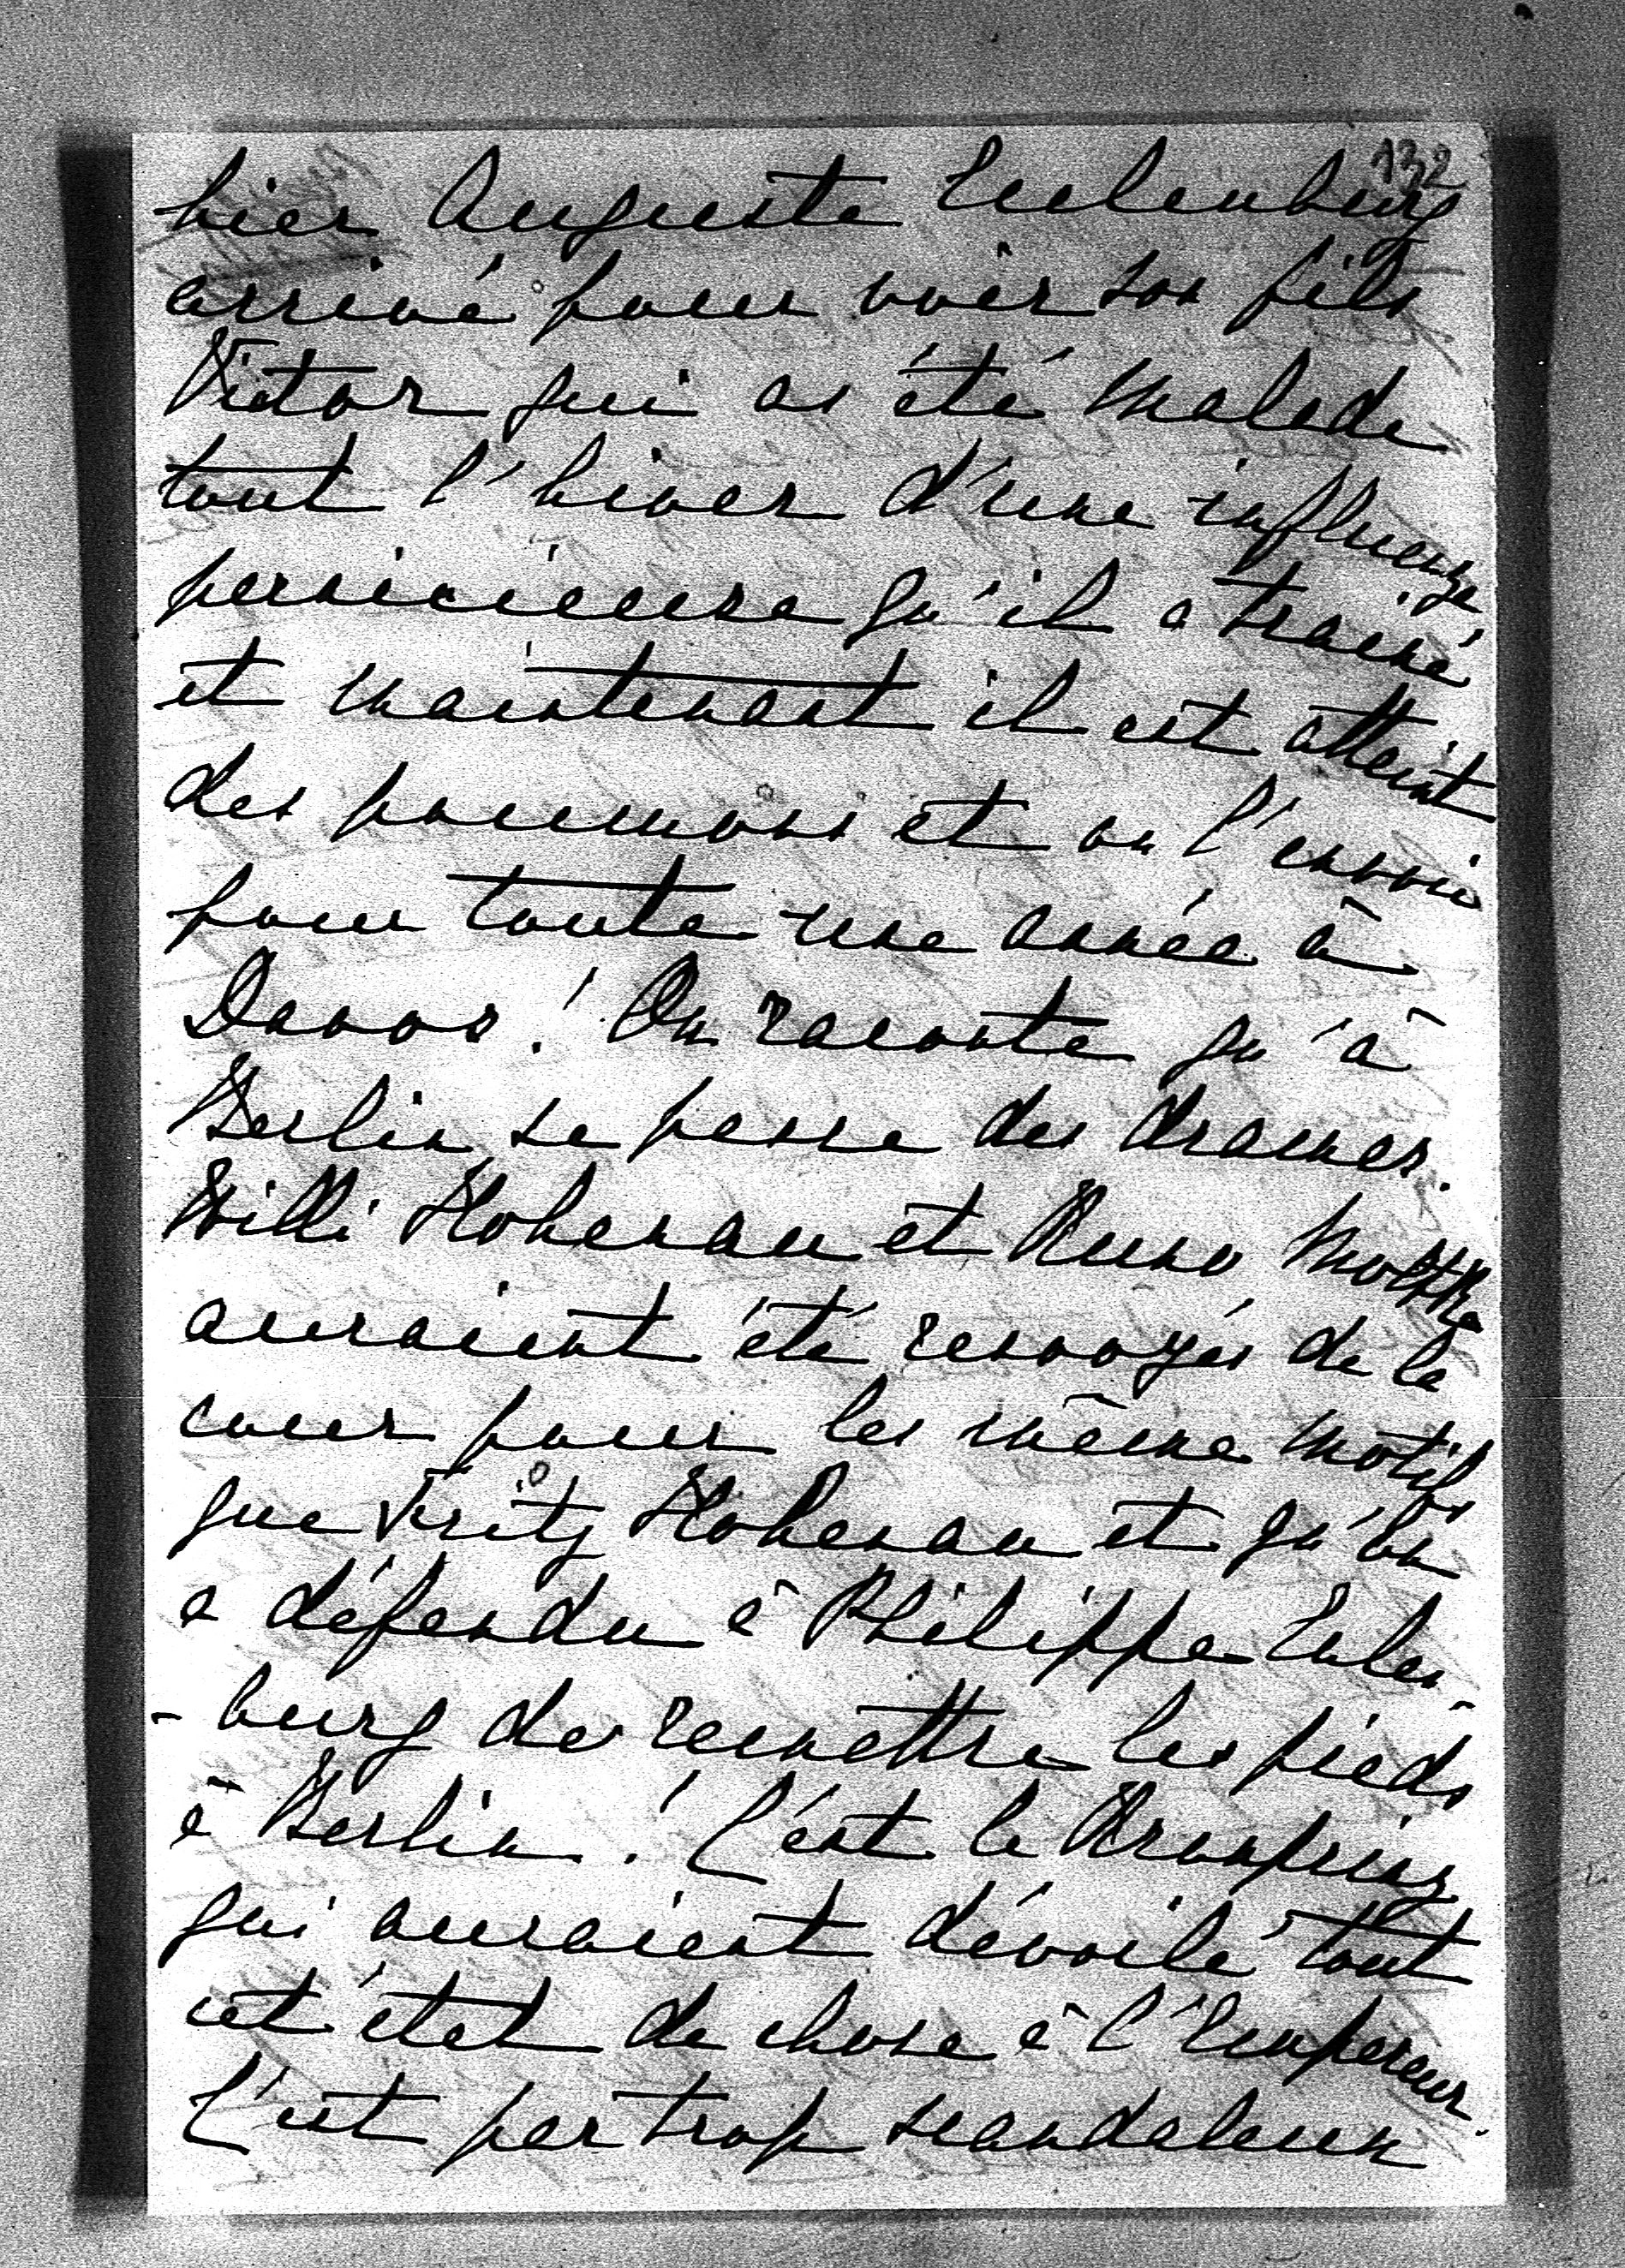 132
hier Auguste Eulenburg
arrivé pour voir son fils
Victor qui as été malade
tout l'hiver d'une influenza
pernicieuse qu'il a trainé
et maintenant il est atteint
des poumons et on l'envoie
pour toute une année à
Davos! On raconte qu'à
Berlin se passe des drames.
Willi Hohenau et Kuno Moltke
auraient été renvoyés de la
cour pour les même motifs
que Fritz Hohenau et qu'on
a défendu à Philippe Eulen-
-burg de remettre les pieds
à Berlin! C'est le Kronprinz
qui auraient dévoilé tout
cet état de chose à l'Empereur.
C'est par trop scandaleux